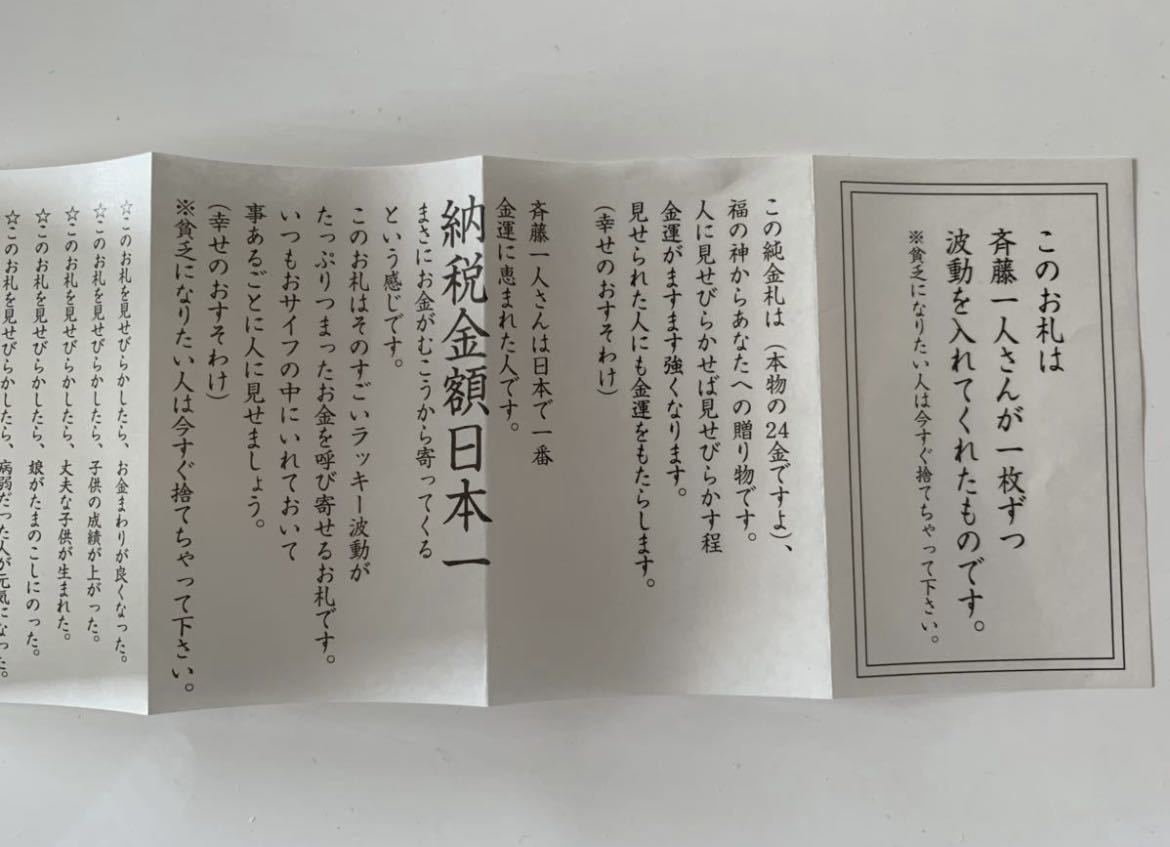 このお札は
斉藤一人さんが一枚ずつ
波動を入れてくれたものです。
※貧乏になりたい人は今すぐ捨てちゃって下さい。
この純金札は（本物の24金ですよ）、
福の神からあなたへの贈り物です。
人に見せびらかせば見せびらかす程
金運がますます強くなります。
見せられた人にも金運をもたらします。
（幸せのおすそわけ）
斉藤一人さんは日本で一番
金運に恵まれた人です。
納税金額日本一
まさにお金がむこうから寄ってくる
という感じです。
このお札はそのすごいラッキー波動が
たっぷりつまったお金を呼び寄せるお札です。
いつもおサイフの中にいれておいて
事あるごとに人に見せましょう。
（幸せのおすそわけ）
※貧乏になりたい人は今すぐ捨てちゃって下さい。
☆このお札を見せびらかしたら、お金まわりが良くなった。
☆このお札を見せびらかしたら、子供の成績が上がった。
☆このお札を見せびらかしたら、丈夫な子供が生まれた。
☆このお札を見せびらかしたら、娘がたまのこしにのった。
☆このお札を見せびらかしたら、病弱だった人が元気になった。